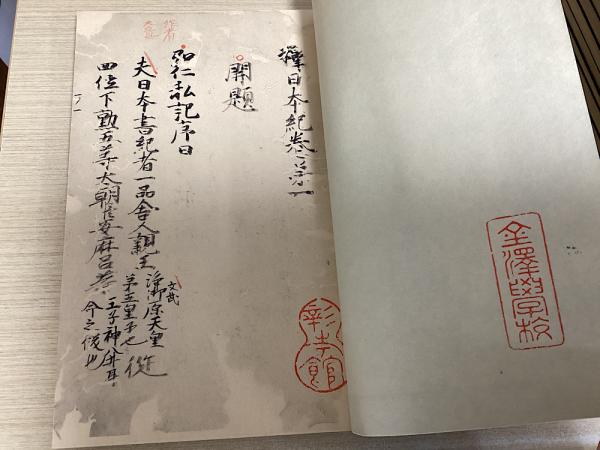 金澤學校
釋日本紀卷第一
開題
弘仁私記序曰
夫日本書紀者一品舍人親王
淨御原天皇
第五皇子也
從
文武
四位下勲五等太朝臣安麻呂等
王子神八井耳
命之後也
彰考館